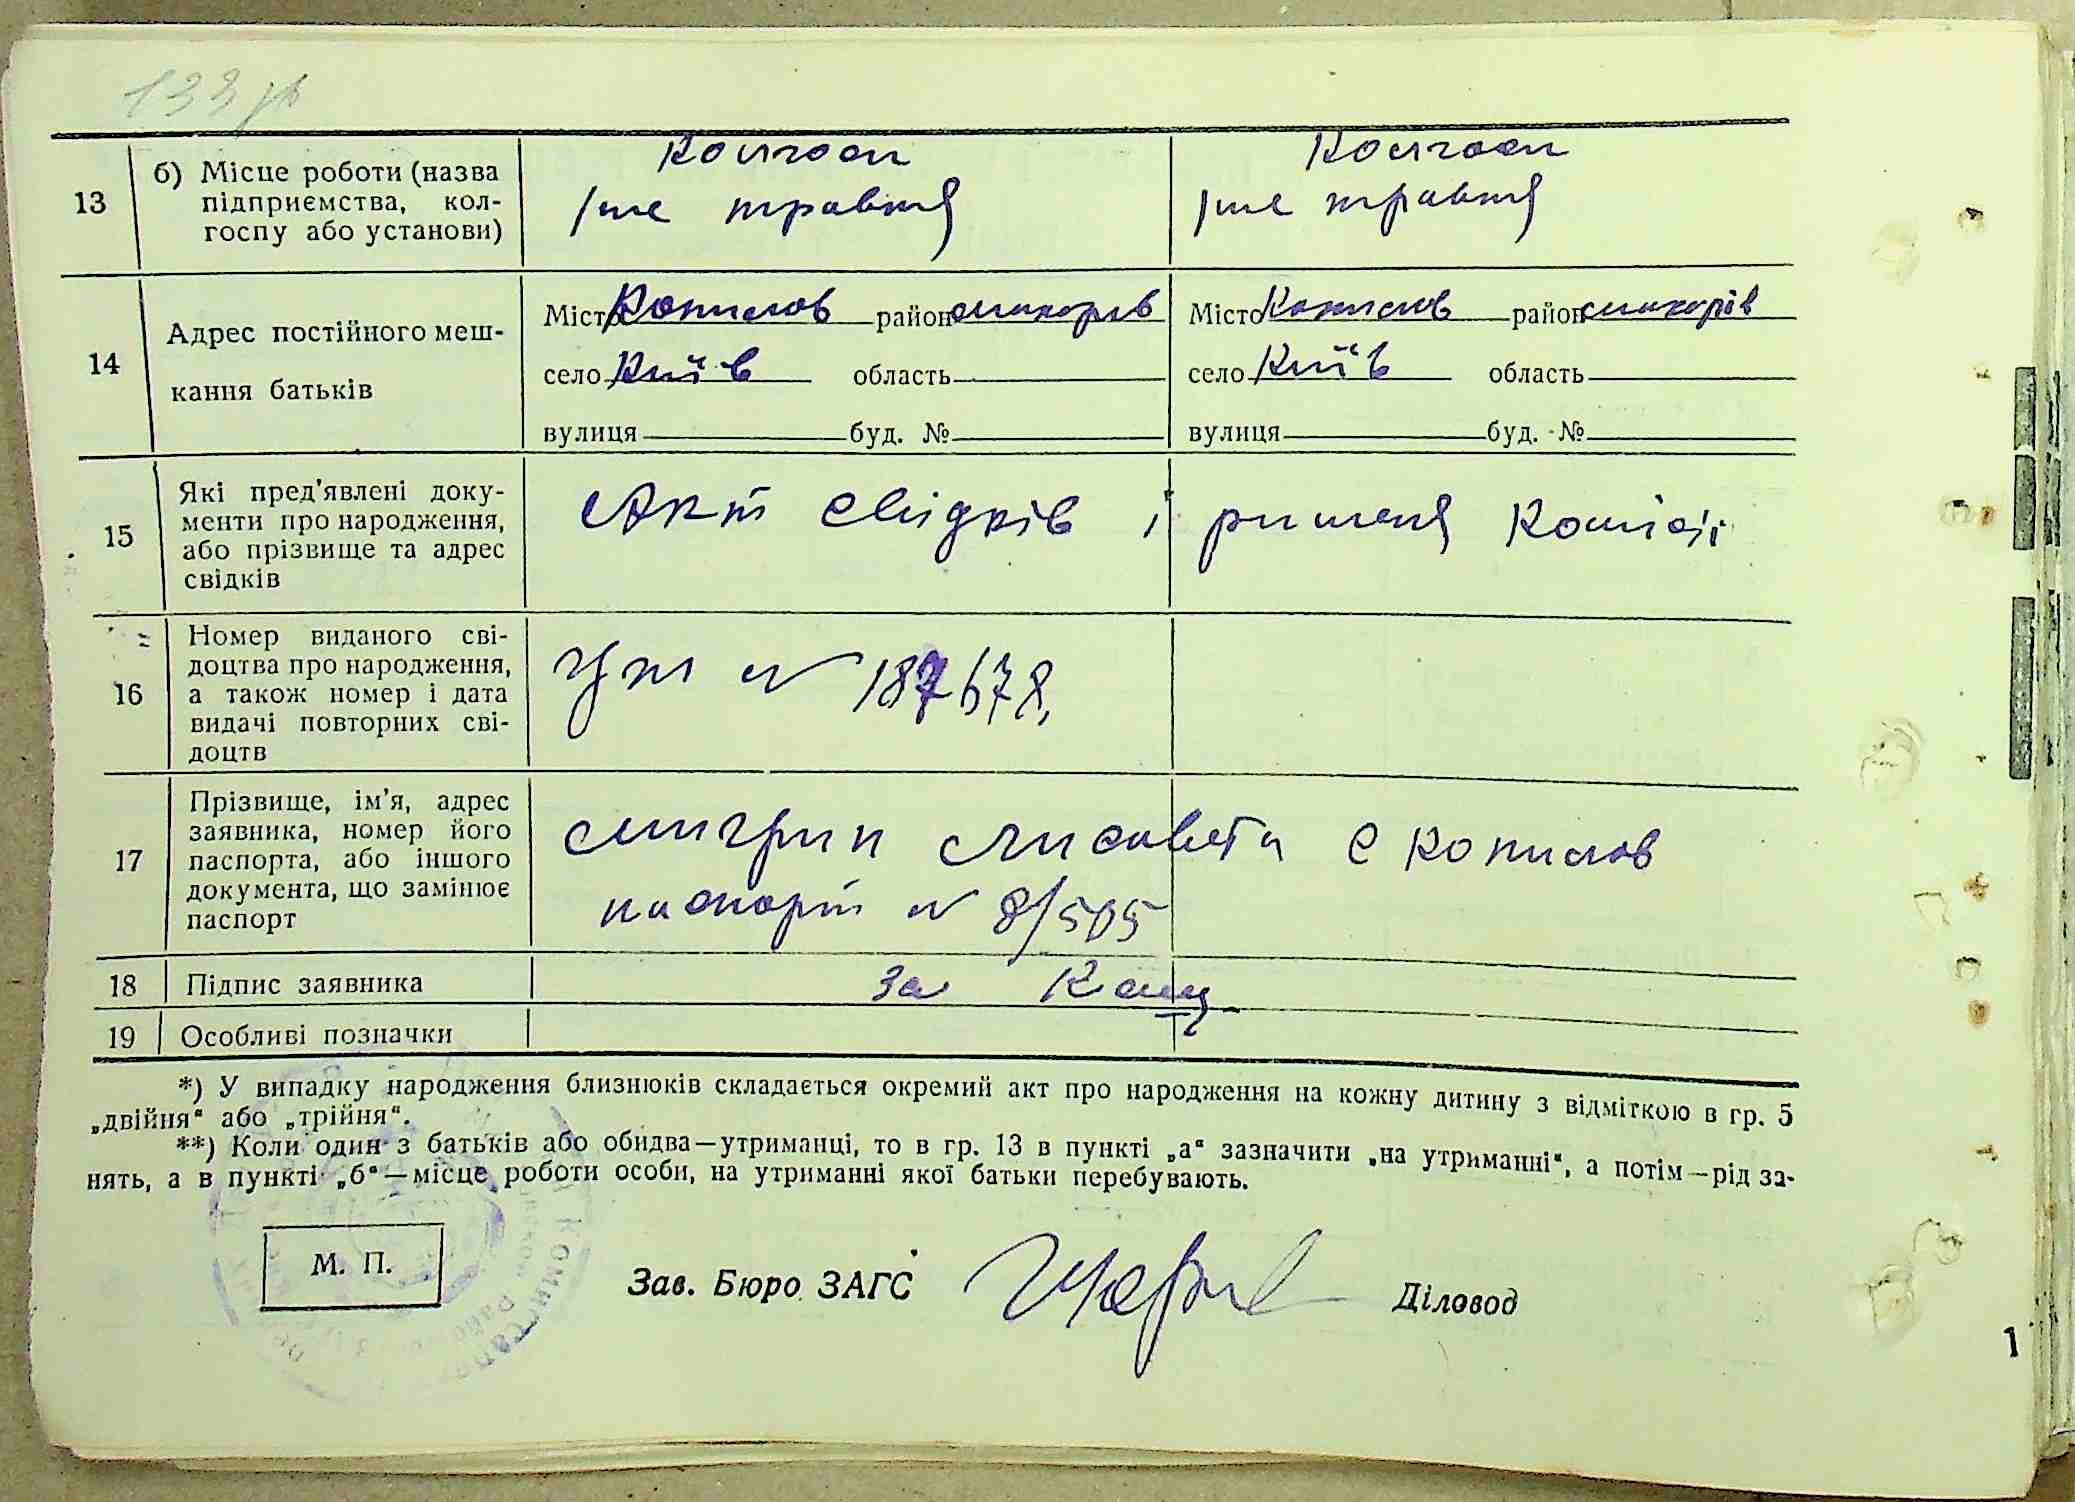 133
13
б) Місце роботи (назва
підприємства, кол-
госпу або установи)
Колгосп
1ше травня
Колгосп
1ше травня
14
Адрес постійного меш-
кання батьків
Місто Копилов район Макорів
село Київ область
вулиця буд. №
Місто Копилов район Макорів
село Київ область
вулиця буд. №
15
Які пред'явлені доку-
менти про народження,
або прізвище та адрес
свідків
Акт свідків і ришеня Комісії
16
Номер виданого сві-
доцтва про народження,
а також номер і дата
видачі повторних сві-
доцтв
№ 187678,
17
Прізвище, ім'я, адрес
заявника, номер його
паспорта, або іншого
документа, що замінює
паспорт
Лисавета с Копилов
паспорт № 8/505
18
Підпис заявника
за
19
Особливі позначки
*) У випадку народження близнюків складається окремий акт про народження на кожну дитину з відміткою в гр. 5
„двійня" або „трійня".
**) Коли один з батьків або обидва—утриманці, то в гр. 13 в пункті „а" зазначити „на утриманні", а потім—рід за-
нять, а в пункті „б"—місце роботи особи, на утриманні якої батьки перебувають.
М. П.
Зав. Бюро ЗАГС
Діловод
1